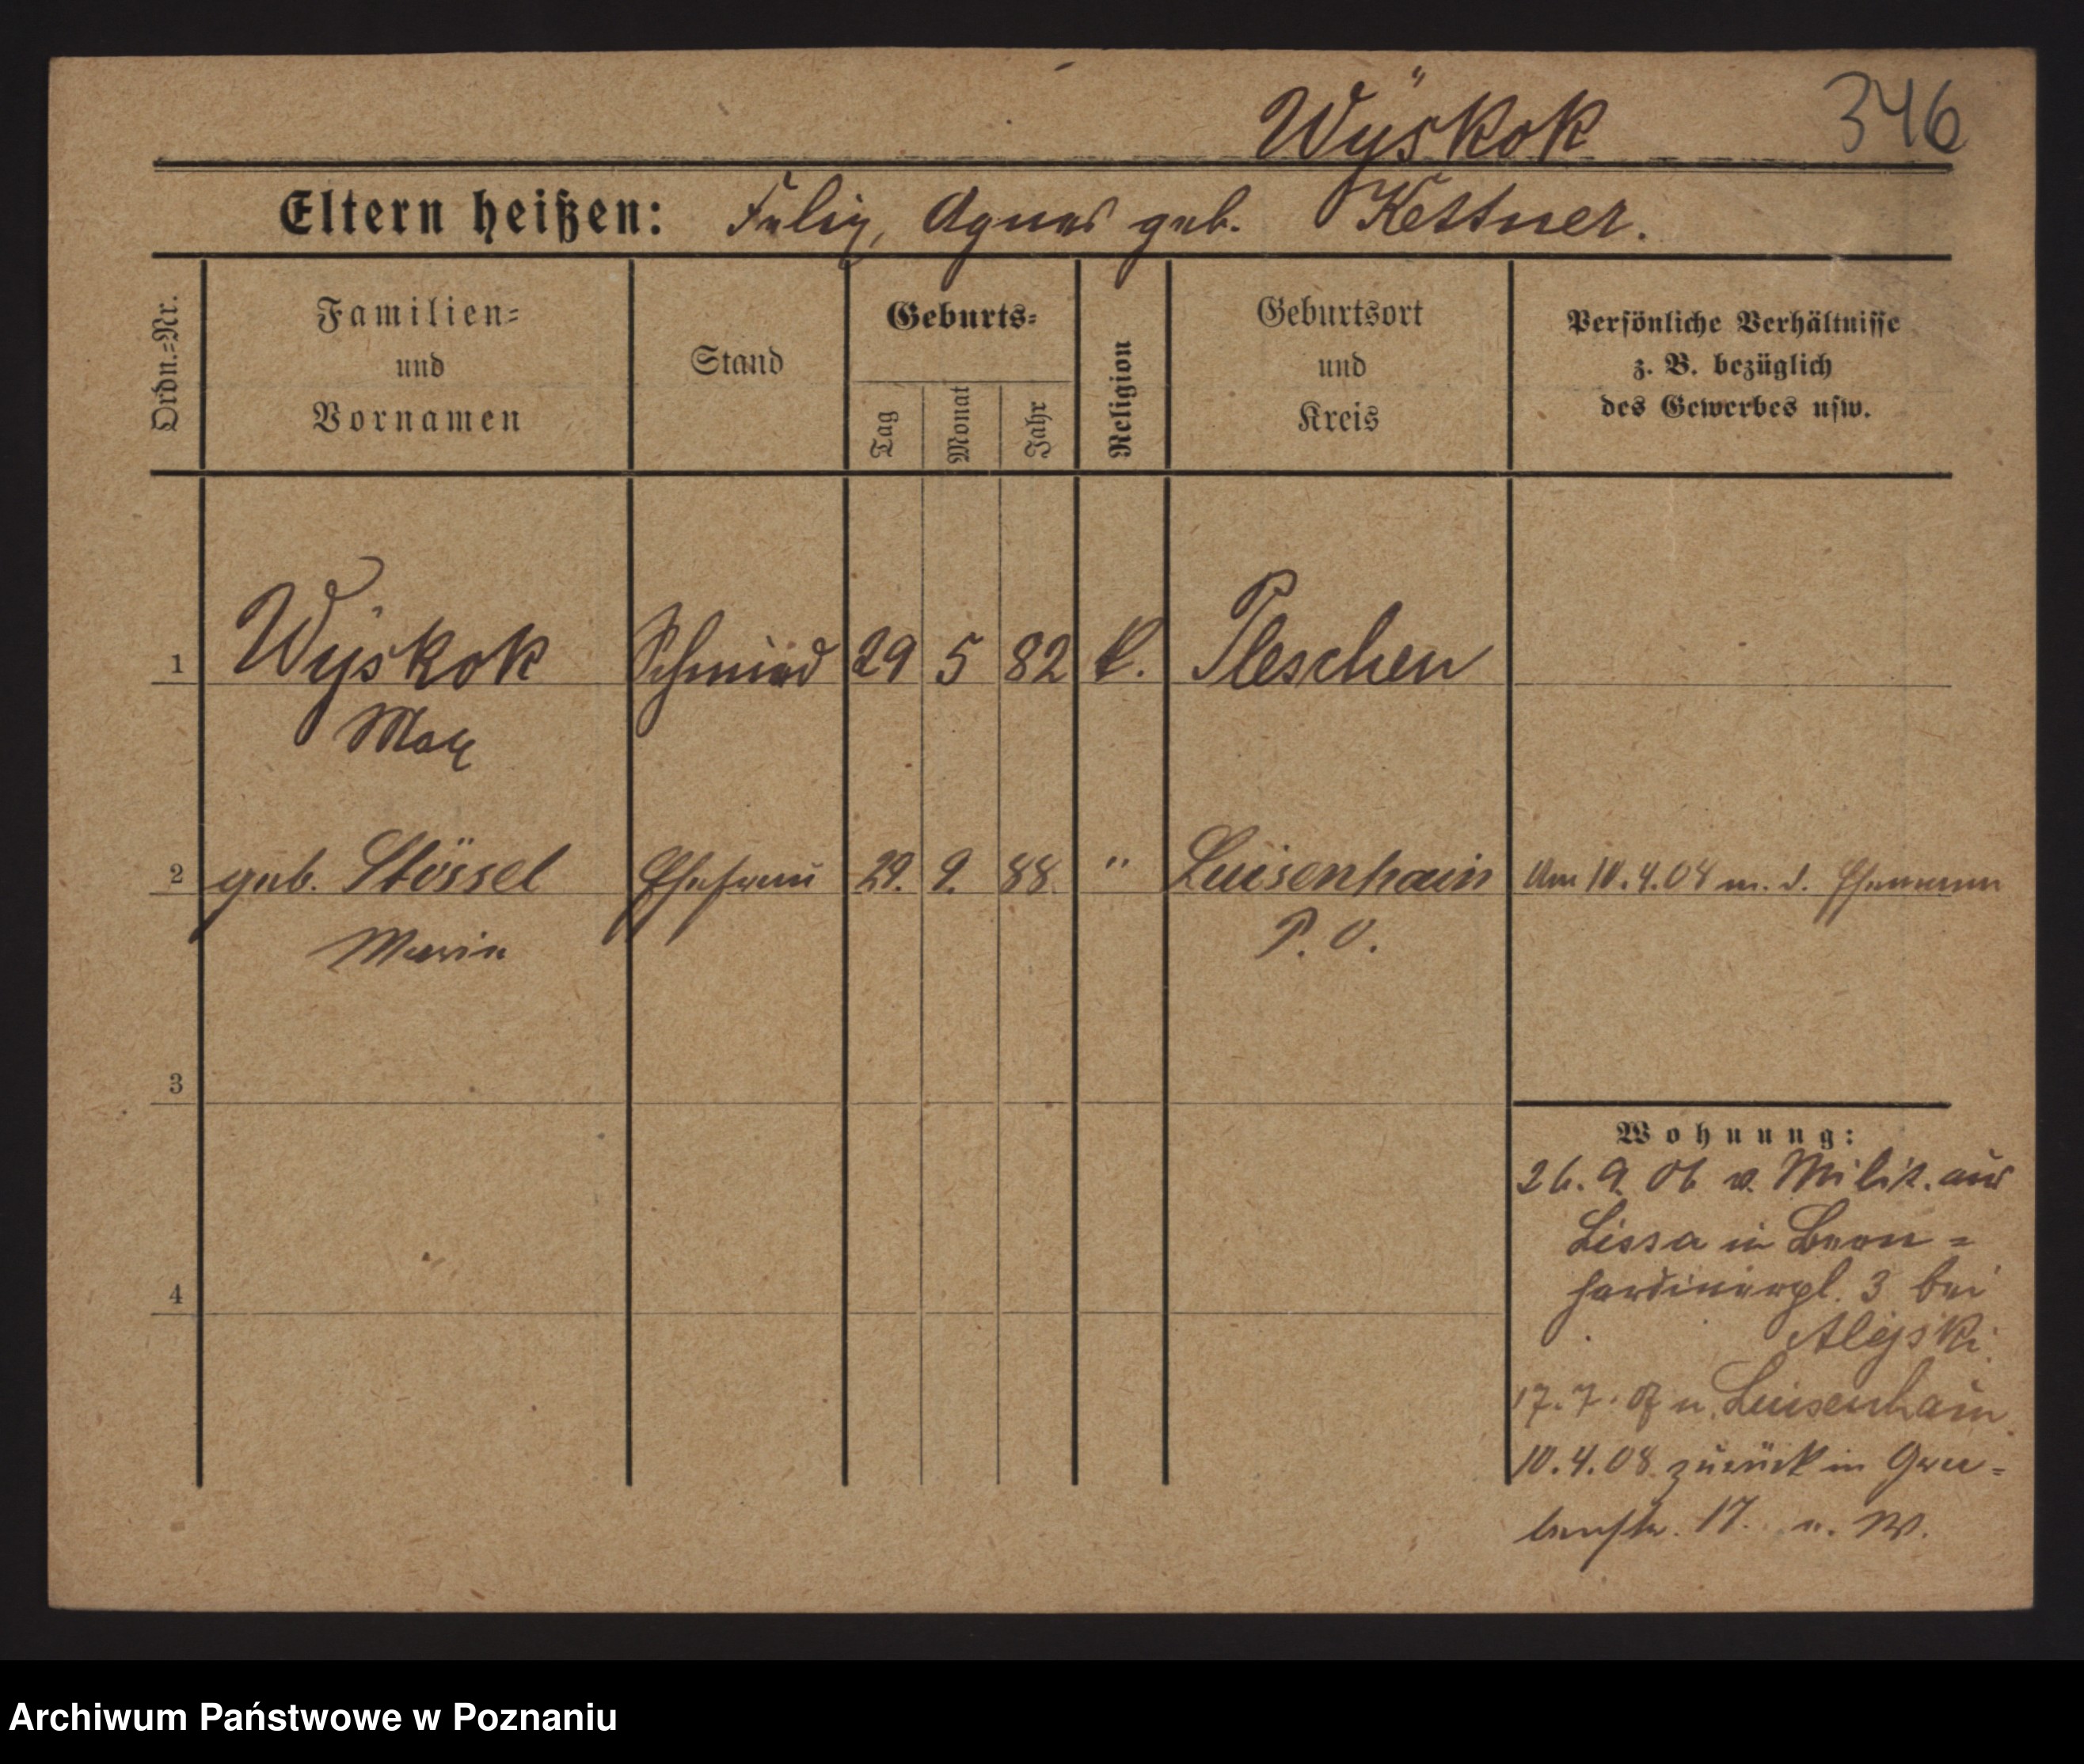 Wÿskok 346
Eltern heißen: Felix, Agnes geb. Kettner.
Ordn.=Nr.
Familien= und Vornamen
Stand
Geburts=
Tag Monat Jahr
Religion
Geburtsort und Kreis
Persönliche Verhältnisse
z. B. bezüglich
des Gewerbes usw.
1 Wÿskok Schmied 29 5 82 k. Pleschen
Max
2 geb. Stössel Ehefrau 29. 9. 88. " Luisenhain Am 10.4.08 m. d. Ehemann
Marie P. O.
3
Wohnung:
26. 9. 06 v. Milit. aus
Lissa in Bern=
hardinerpl. 3 bei
4
Alejski
17. 7. 07 n. Luisenhain
10.4.08 zurück in Gra=
benstr. 17. n. W.
Archiwum Państwowe w Poznaniu